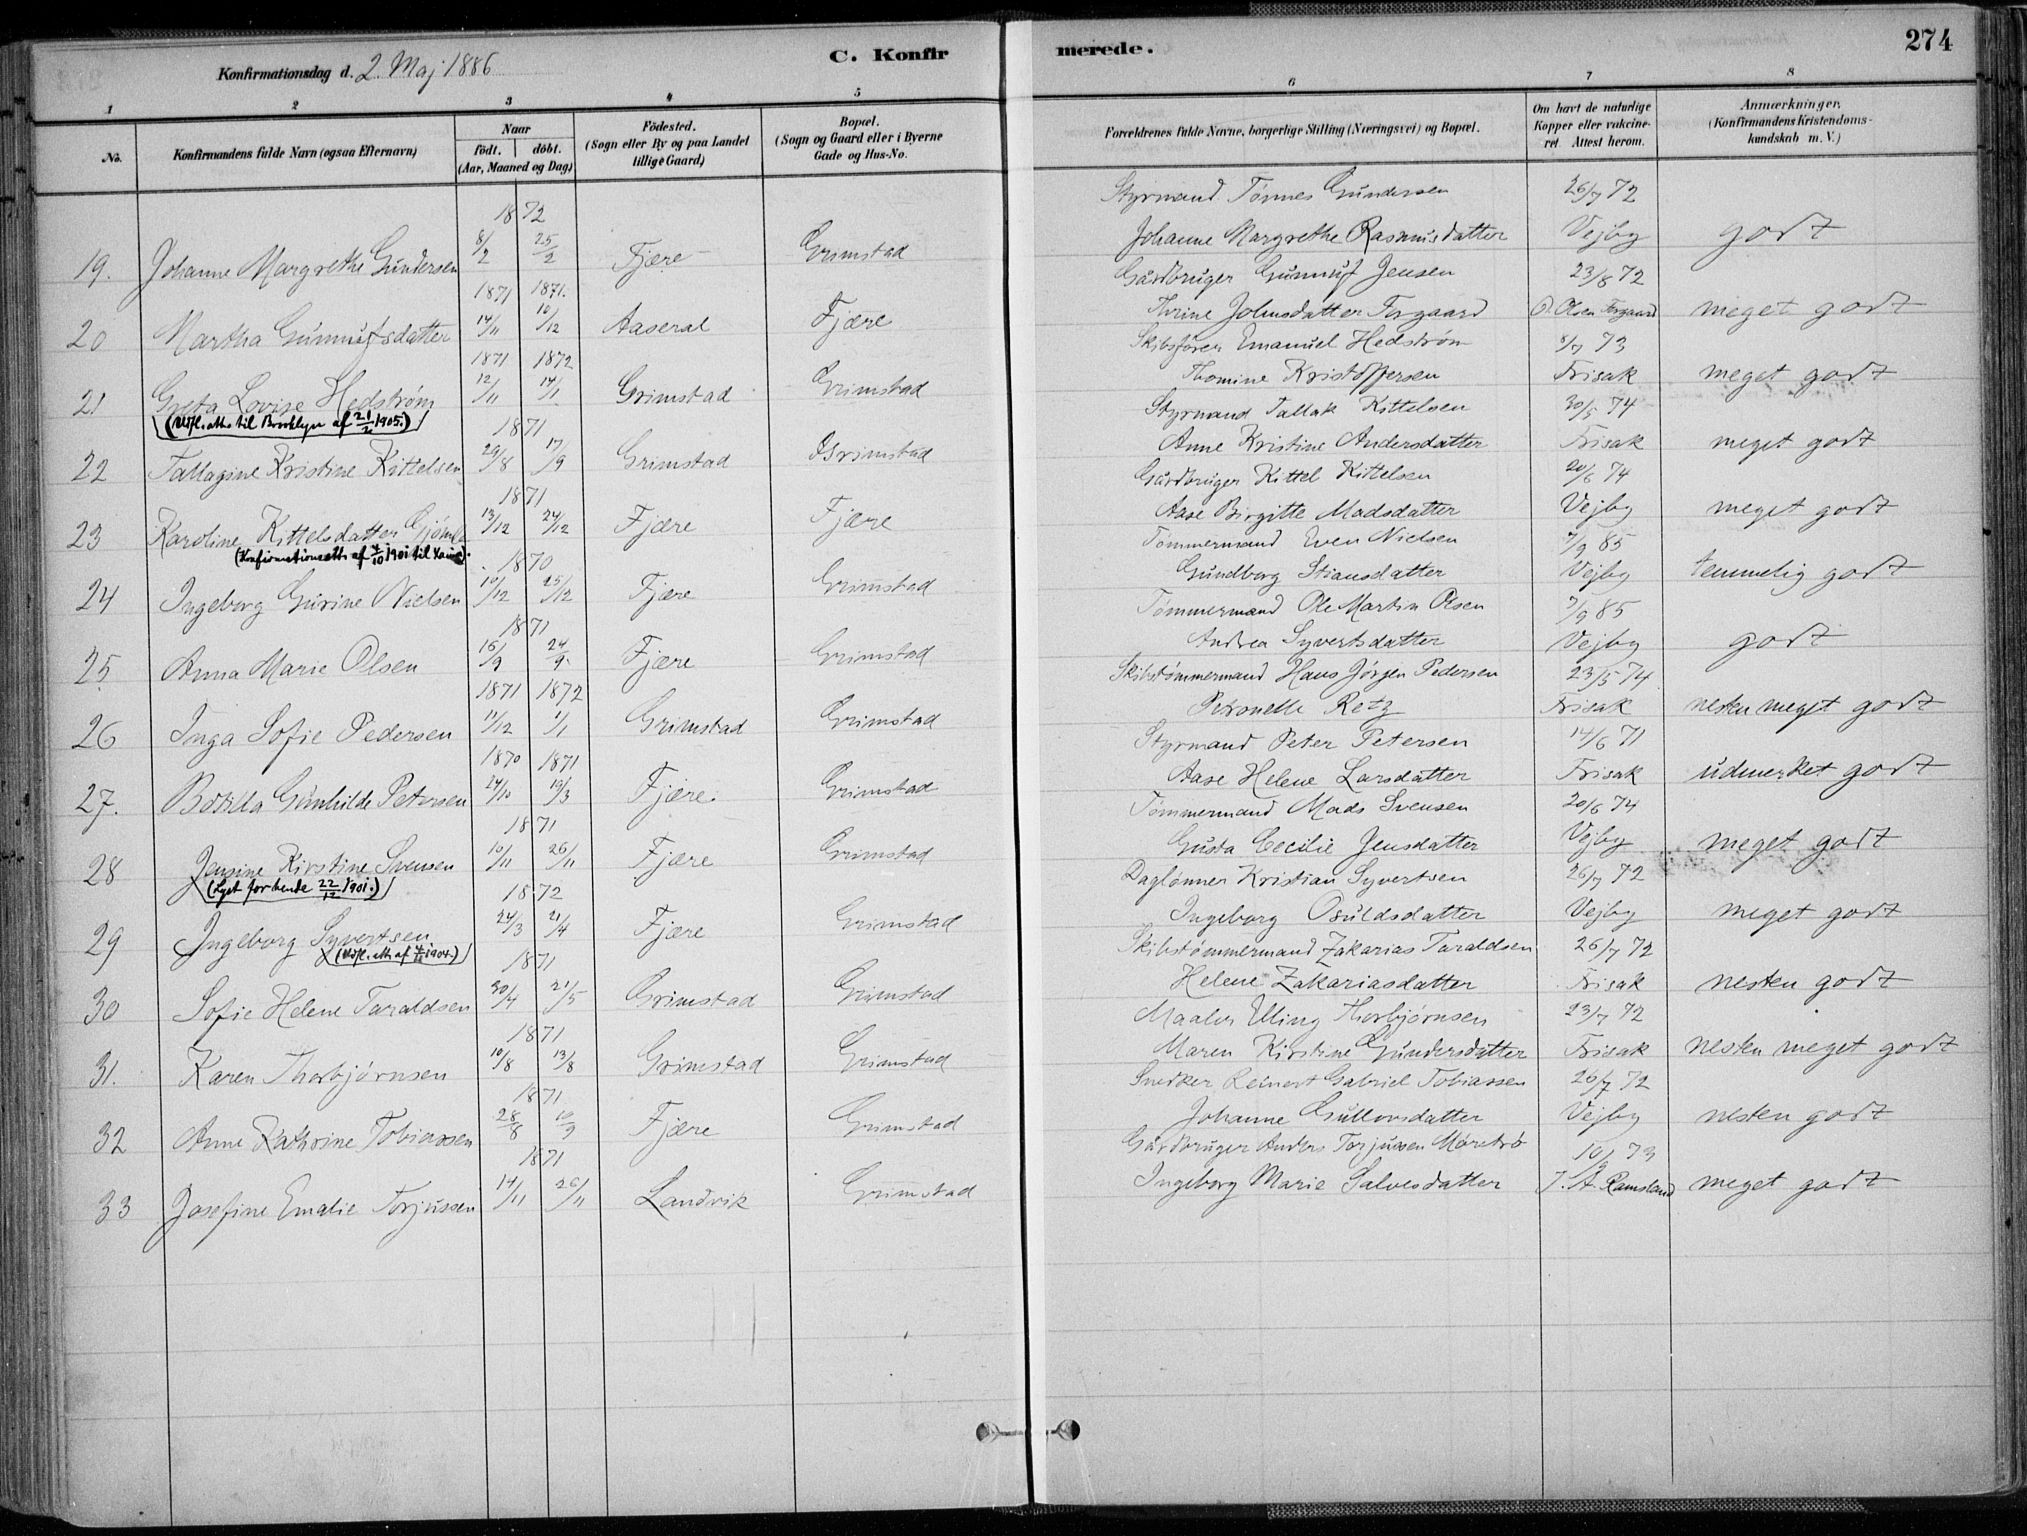 274
C. Konfirmerede.
Konfirmationsdag d. 2. Maj 1886
1 2 3 4 5 6 7 8
No.
Konfirmandens fulde Navn (ogsaa Efternavn)
Naar
födt. döbt.
(Aar, Maaned og Dag)
Födested.
(Sogn eller By og paa Landet
tillige Gaard)
Bopæl.
(Sogn og Gaard eller i Byerne
Gade og Hus-No.
Forældrenes fulde Navne, borgerlige Stilling (Næringsvei) og Bopæl.
Om havt de naturlige
Kopper eller vakcine-
ret. Attest herom.
Anmærkninger.
(Konfirmandens Kristendoms-
kundskab m. V.)
1872 Styrmand Tønnes Gundersen 26/7 72
19. Johanne Margrethe Gundersen 8/2 25/2 Fjære Grimstad Johanne Margrethe Rasmusdatter Vejby godt
1871 1871. Gårdbruger Gunnuf Jensen 23/8 72
20 Martha Gunnufsdatter 14/11 10/12 Aaseral Fjære Thrine Johnsdatter Torgaard O. Olsen Torgaard meget godt
1871 1872 Skibsfører Emanuel Hedstrøm 8/7 73
21 Greta Lovise Hedstrøm 12/11 14/1 Grimstad Grimstad Thomine Kristoffersen Frisak meget godt
(Utfl. atts til Brooklyn af 21/2 1905.)
1871 Styrmand Tallak Kittelsen 30/5 74
22 Tallagine Kristine Kittelsen 29/8 17/9 Grimstad Grimstad Anne Kristine Andersdatter Frisak meget godt
1871 Gårdbruger Kittel Kittelsen 20/6 74
23 Karoline Kittelsdatter Gjømle 13/12 24/12 Fjære Fjære Aase Birgitte Madsdatter Vejby meget godt
(Konfirmationsatts af 4/10 1901 til
1870 Tømmermand Even Nielsen 7/9 85
24 Ingeborg Gurine Nielsen 10/12 25/12 Fjære Grimstad Gundborg Stiansdatter Vejby temmelig godt
1871 Tømmermand Ole Martin Olsen 7/9 85
25 Anna Marie Olsen 16/9 24/9 Fjære Grimstad Andrea Syvertsdatter Vejby godt
1871 1872 Skibstømmermand Hans Jørgen Pedersen 23/5 74
26 Inga Sofie Pedersen 11/12 1/1 Grimstad Grimstad Petronelle Retz Frisak nesten meget godt
1870 1871 Styrmand Peter Petersen 14/6 71
27. Botilda Gunhilde Petersen 24/10 19/3 Fjære Grimstad Aase Helene Larsdatter Frisak udmerket godt
1871 Tømmermand Mads Svensen 20/6 74
28 Jensine Kirstine Svensen 10/11 26/11 Fjære Grimstad Gusta Cecilie Jensdatter Vejby meget godt
(Lyst for hende 22/12 1901.)
1872 Daglønner Kristian Syvertsen 26/7 72
29 Ingeborg Syvertsen 24/3 21/4 Fjære Grimstad Ingeborg Osuldsdatter Vejby meget godt
1871 Skibstømmermand Zakarias Taraldsen 26/7 72
30 Sofie Helene Taraldsen 30/4 21/5 Grimstad Grimstad Helene Zakariasdatter Frisak nesten godt
1871 Maaler Elling Thorbjørnsen 23/7 72
31. Karen Thorbjørnsen 10/8 13/8 Grimstad Grimstad Maren Kirstine Gundersdatter Frisak nesten meget godt
1871 Snedker Reinert Gabriel Tobiassen 26/7 72
32 Anne Kathrine Tobiassen 28/8 10/9 Fjære Grimstad Johanne Gullovsdatter Vejby nesten godt
1871 Gårdbruger Anders Torjussen Moretrø 73
33 Josefine Emalie Torjussen 14/11 26/11 Landvik Grimstad Ingeborg Marie Salvesdatter J. A. Ramsland meget godt